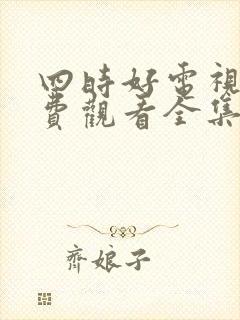 四時好電視
費觀看全集
齊娘子